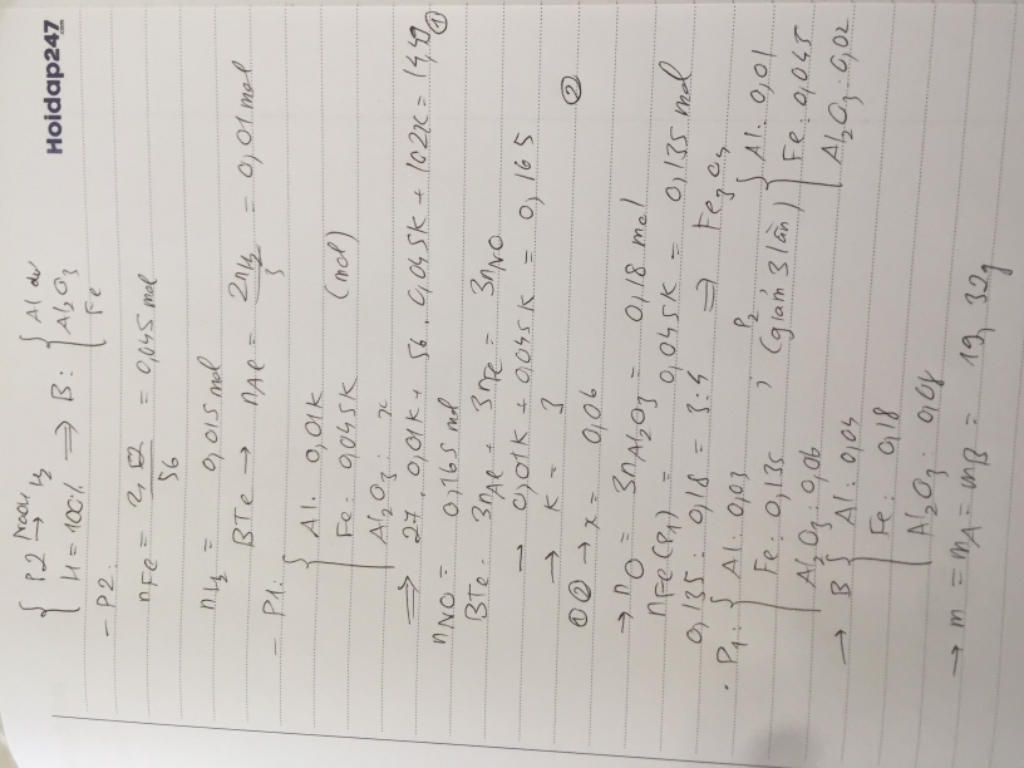 Hoidap247
.com
{ P2 NaOH→ H2
H = 100% ⇒ B: { Al dư
Al2O3
Fe
- P2:
nFe = 2,52/56 = 0,045 mol
nH2 = 0,015 mol
BTe → nAl = 2nH2/3 = 0,01 mol
- P1: { Al: 0,01K
Fe: 0,045K (mol)
Al2O3: x
⇒ 27. 0,01K + 56. 0,045K + 102x = 14,49 ①
nNO = 0,165 mol
BTe: 3nAl + 3nFe = 3nNO
→ 0,01K + 0,045K = 0,165 ②
→ K = 3
①② → x = 0,06
→ nO = 3nAl2O3 = 0,18 mol
nFe(P1) = 0,045K = 0,135 mol
0,135 : 0,18 = 3:4 ⇒ Fe3O4
. P1: { Al: 0,03
Fe: 0,135
Al2O3: 0,06
; P2 (giảm 3 lần) { Al: 0,01
Fe: 0,045
Al2O3: 0,02
→ B { Al: 0,04
Fe: 0,18
Al2O3: 0,08
→ m = mA = mB = 19,32g